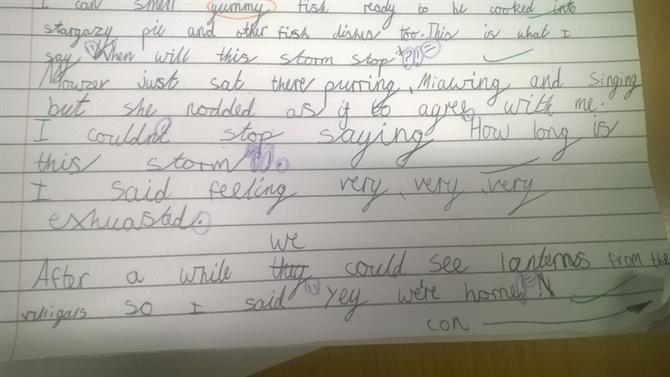 I can smell yummy fish ready to be cooked into
stargazy pie and other fish dishes too. This is what I
say "When will this storm stop"?
Mowzer just sat there purring, Miawing and Singing
but she nodded as if to agree with me.
I couldn't stop saying "How long is
this storm"?
I said feeling very, very, very
exhuasted.
we
After a while they could see lanterns from the
villigars so I said "Yey we're home"!
con